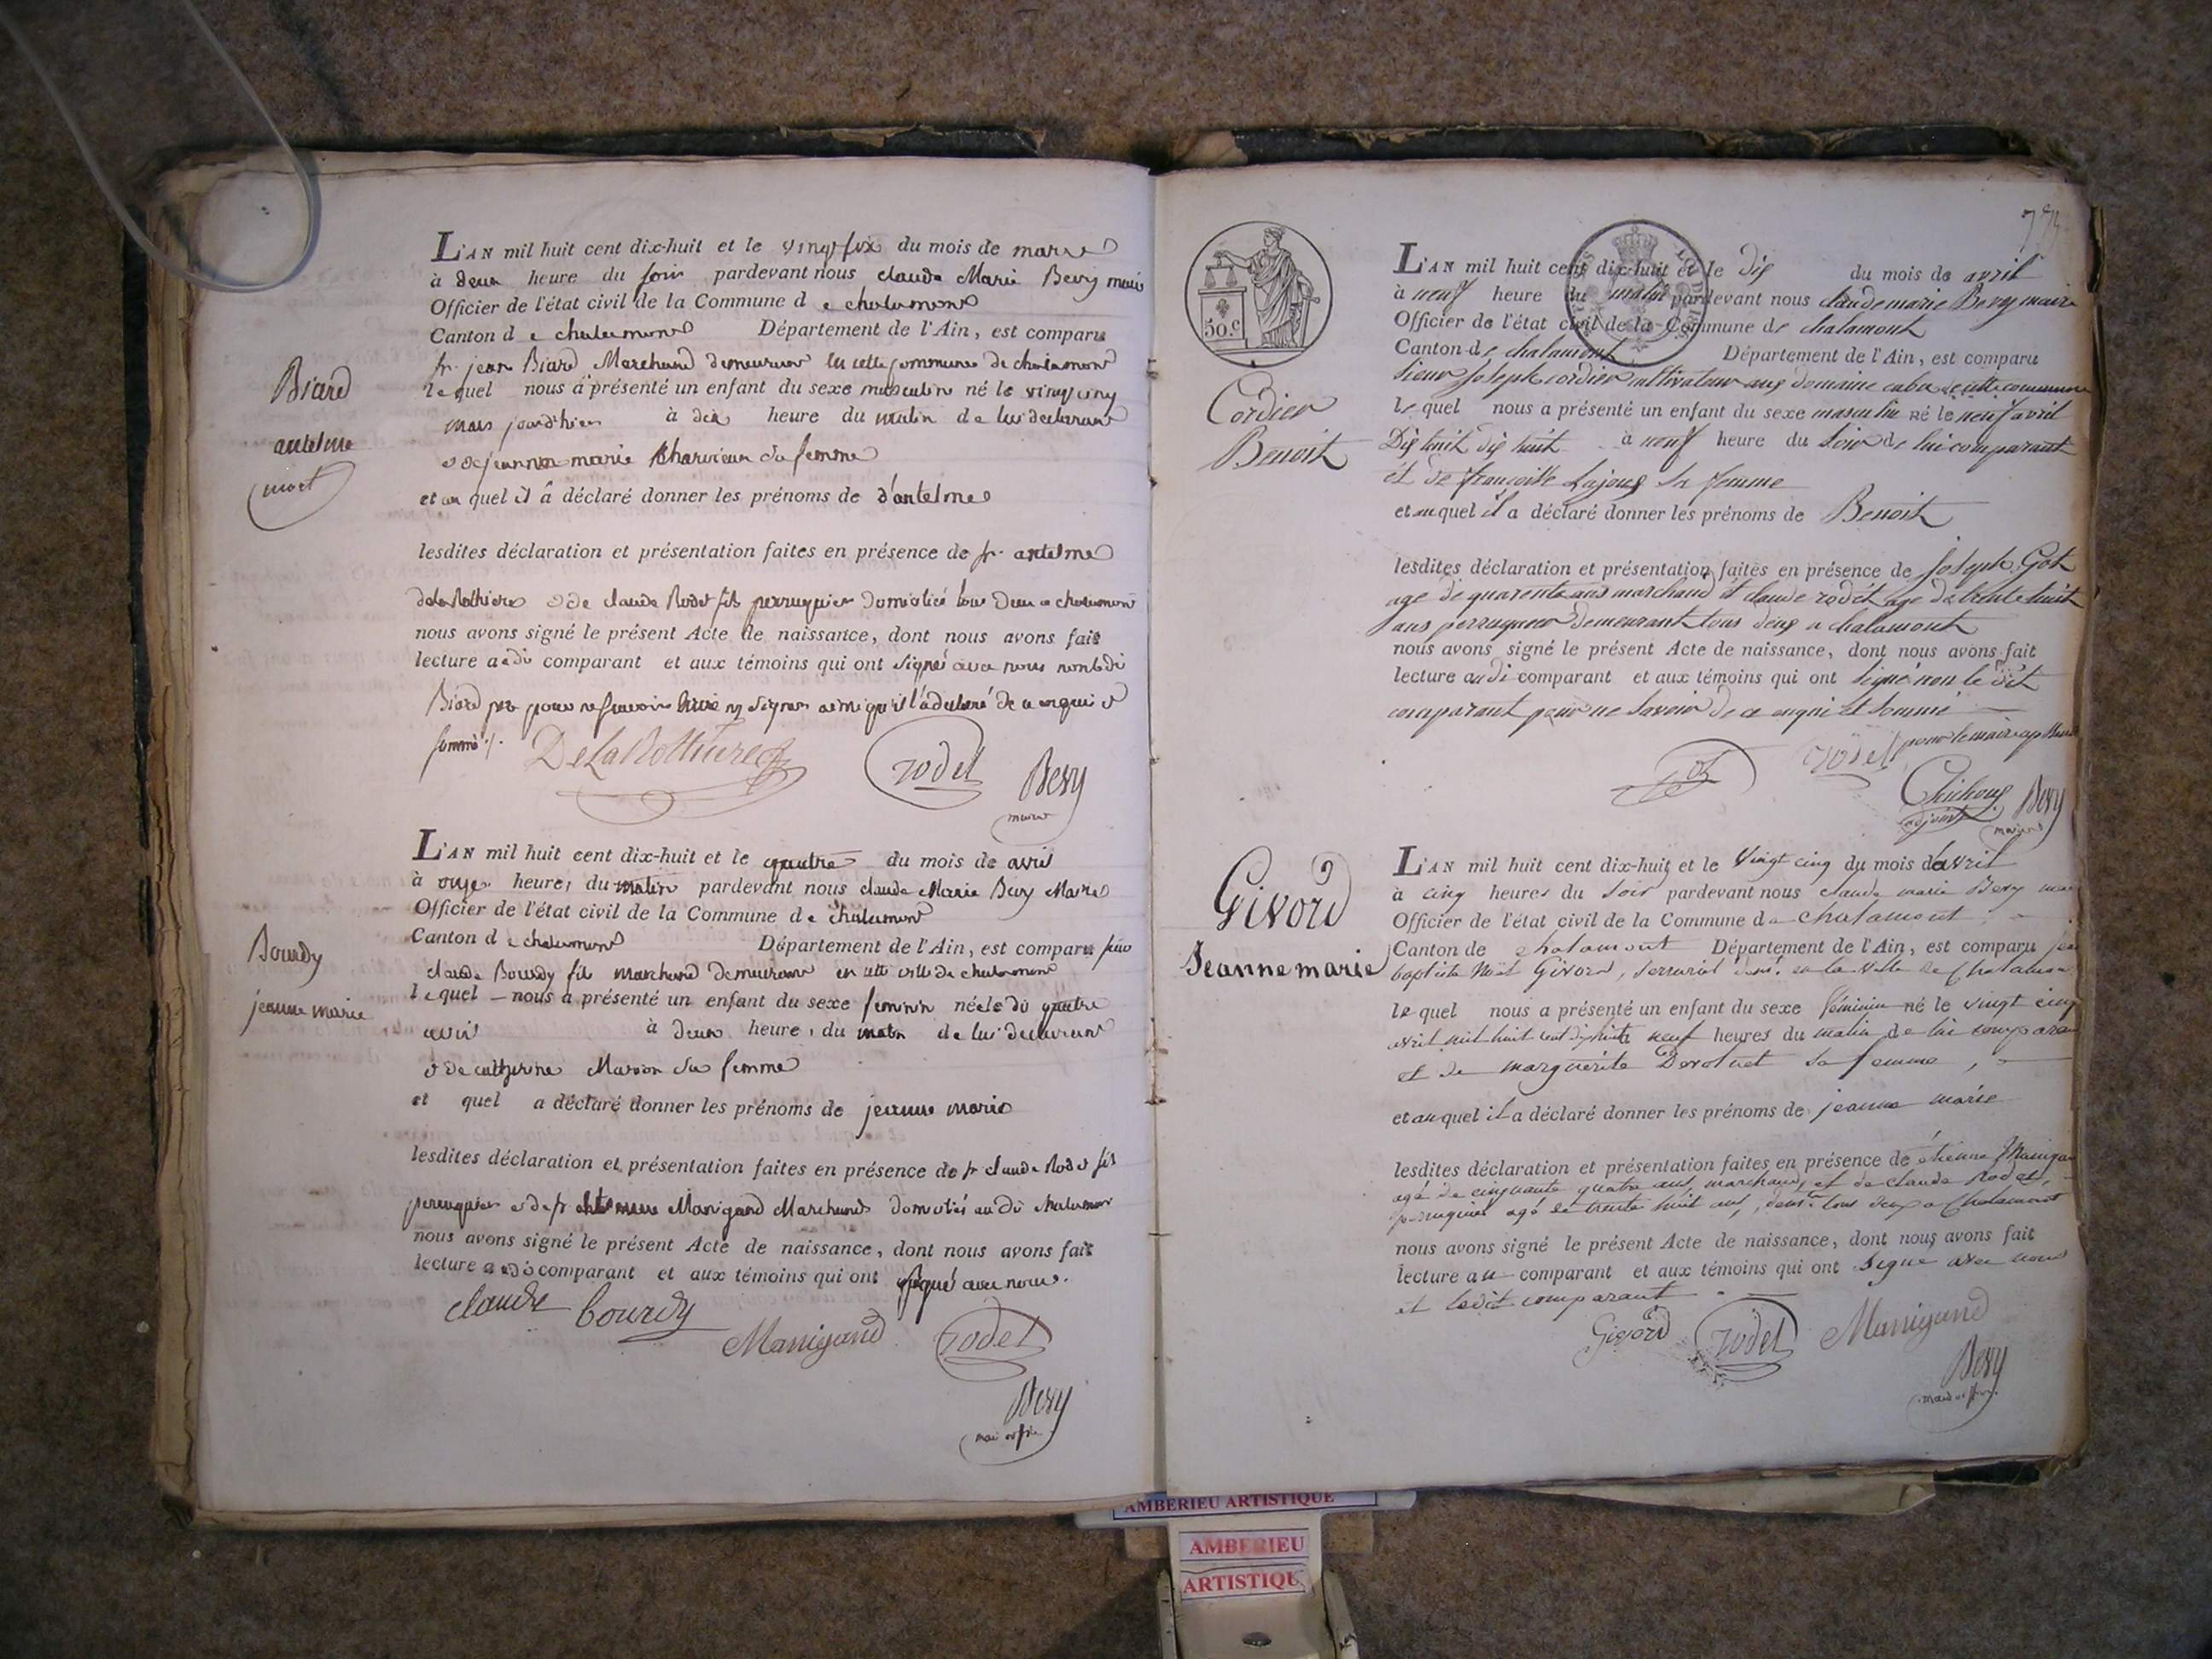 Biard
antelme
mort
L'AN mil huit cent dix-huit et le vingt six du mois de mars
à deux heure du soir pardevant nous claude Marie Bevy maire
Officier de l'état civil de la Commune de chalamont
Canton de chalamont Département de l'Ain, est comparu
sr. jean Biard Marchand demeurant en cette commune de chalamont
lequel nous a présenté un enfant du sexe masculin né le vingt cinq
mars jourd'hier à dix heure du matin de lui declarant
et de jeanne marie sa femme
et au quel il a déclaré donner les prénoms de d'antelme
lesdites déclaration et présentation faites en présence de sr. antelme
delaRothiere et de claude Rodet fils perruquier domicilié tous deux a chalamont
nous avons signé le présent Acte de naissance, dont nous avons fait
lecture au di comparant et aux témoins qui ont signé avec nous non le di
Biard pour ne savoir signer ainsi qu'il l'a declaré de ce enquis et
sommé
DeLaRothiere rodet Bevy
maire
Bourdy
jeanne marie
L'AN mil huit cent dix-huit et le quatre du mois de avril
à onze heures du matin pardevant nous claude Marie Bevy Maire
Officier de l'état civil de la Commune de chalamont
Canton de chalamont Département de l'Ain, est comparu
claude Bourdy fils marchand demeurant en cette ville de chalamont
lequel nous a présenté un enfant du sexe feminin née le di quatre
avril à deux heure, du matin de lui declarant
et de catherine Marion sa femme
et quel a déclaré donner les prénoms de jeanne marie
lesdites déclaration et présentation faites en présence de sr claude Rodet fils
perruquier et de sr Manigand Marchand domiciliés au di chalamont
nous avons signé le présent Acte de naissance, dont nous avons fait
lecture au di comparant et aux témoins qui ont signé avec nous.
claude bourdy
Manigand rodet
Bevy
50.c
Cordier
Benoit
L'AN mil huit cent dix-huit et le dix du mois de avril
à neuf heure du matin pardevant nous claude marie Bevy maire
Officier de l'état civil de la Commune de chalamont
Canton de chalamont Département de l'Ain, est comparu
sieur joseph cordier cultivateur aux domaine cette commune
lequel nous a présenté un enfant du sexe masculin né le neuf avril
Dix huit dix huit à neuf heure du soir de lui comparant
et de françoise Lajoux sa femme
et au quel il a déclaré donner les prénoms de Benoit
lesdites déclaration et présentation faites en présence de joseph Got
agé de quarente ans marchand et claude rodet agé de trente huit
ans perruquier demeurant tous deux a chalamont
nous avons signé le présent Acte de naissance, dont nous avons fait
lecture au di comparant et aux témoins qui ont signé non le dit
comparant pour ne savoir de ce enquis et sommé
Got rodet pour le maire
adjoint Bevy
maire
Givord
Jeanne marie
L'AN mil huit cent dix-huit et le vingt cinq du mois d'avril
à cinq heures du soir pardevant nous claude marie Bevy
Officier de l'état civil de la Commune de chalamont
Canton de chalamont Département de l'Ain, est comparu
baptiste Noël Givord, serrurier demt. en la ville de Chalamon
lequel nous a présenté un enfant du sexe féminin né le vingt cinq
avril mil huit cent dix huit à neuf heures du matin de lui
et de marguerite Devoluet sa femme,
et au quel il a déclaré donner les prénoms de jeanne marie
lesdites déclaration et présentation faites en présence de étienne
agé de cinquante quatre ans, marchand, et de claude Rodet,
perruquier agé de trente huit ans, demt. tous deux a Chalamont
nous avons signé le présent Acte de naissance, dont nous avons fait
lecture au comparant et aux témoins qui ont signé avec nous
et ledit comparant
Givord rodet Manigand
Bevy
AMBERIEU ARTISTIQUE
AMBERIEU
ARTISTIQU